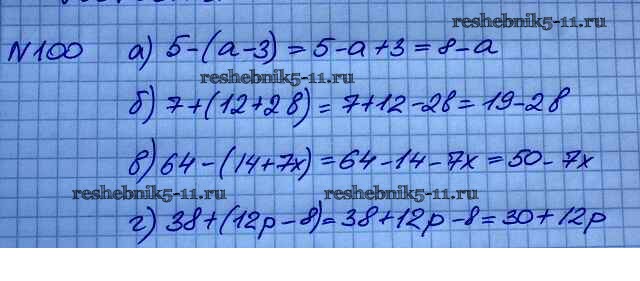 reshebnik5-11.ru
N100 а) 5-(а-3) = 5-а+3 = 8-а
reshebnik5-11.ru
б) 7+(12+2в) = 7+12-2в = 19-2в
в) 64-(14+7x) = 64-14-7x = 50-7x
reshebnik5-11.ru reshebnik5-11.ru
г) 38+(12p-8) = 38+12p-8 = 30+12p